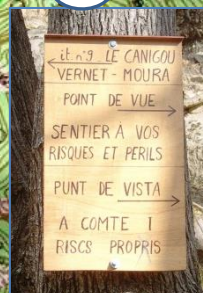 it. n°9 LE CANIGOU
VERNET - MOURA
POINT DE VUE
SENTIER À VOS
RISQUES ET PERILS
PUNT DE VISTA
A COMTE I
RISCS PROPRIS